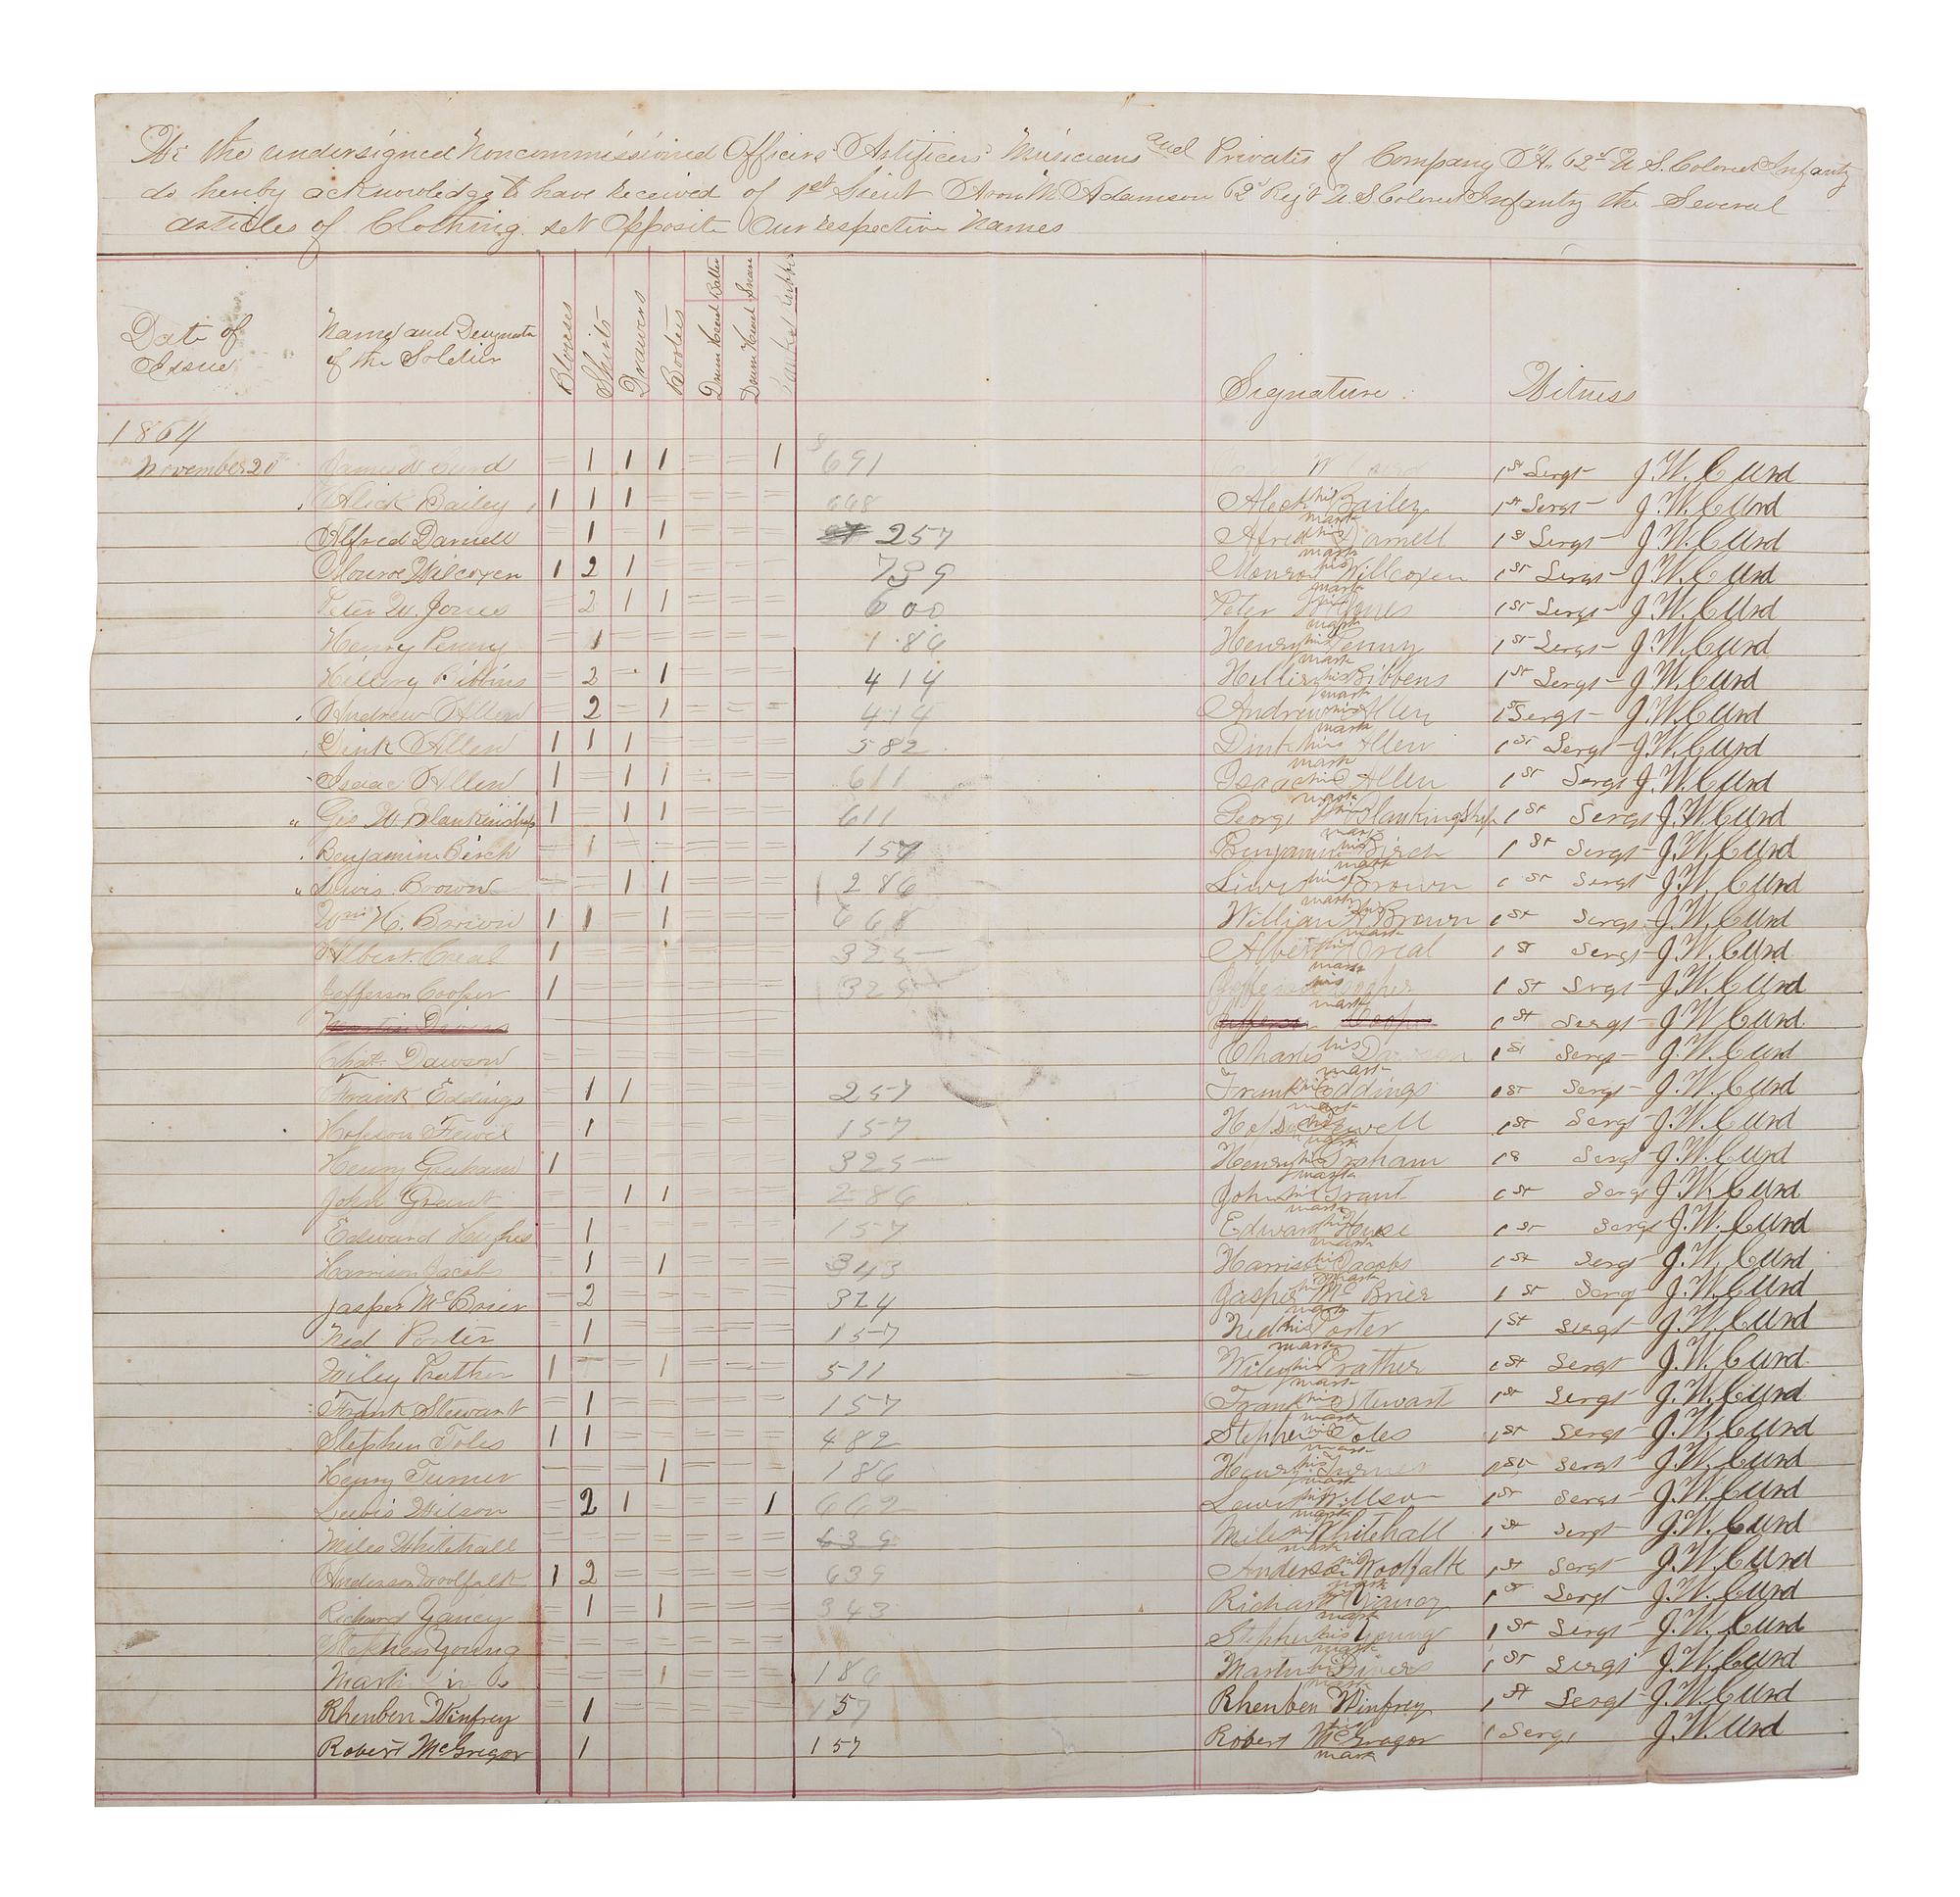 We the undersigned Noncommissioned Officers Artificers Musicians and Privates of Company "A" 62d U S. Colored Infantry
do hereby acknowledge to have received of 1st Lieut Adamson 62d Reg't U S Colored Infantry the Several
articles of Clothing set opposite Our respective Names
Date of Issue Name and Designation of the Soldier Blouses Shirts Drawers Bootees Drum Head Batter Drum Head Snare Rubber Signature Witness
1864
November 20 James W Curd = 1 1 1 = = 1 691 W Curd 1st Sergt J. W. Curd
Alick Bailey 1 1 1 = = = = 668 Aleck his mark Bailey 1st Sergt J. W. Curd
Alfred Darnell = 1 = 1 = = = 257 Afred his mark Darnell 1st Sergt J. W. Curd
Monroe Wilcoxen 1 2 1 = = = = 739 Monroe his mark Willcoxen 1st Sergt J. W. Curd
Peter W. Jones = 2 1 1 = = = 600 Peter his mark Jones 1st Sergt J. W. Curd
Henry Penny = 1 = = = = 186 Henry his mark Penny 1st Sergt J. W. Curd
Hillery Gibbins = 2 - 1 = = = 414 his mark Gibbens 1st Sergt J. W. Curd
Andrew Allen = 2 - 1 = = = 414 Andrew his mark Allen 1st Sergt J. W. Curd
Dink Allen 1 1 1 = = = = 582 Dink his mark Allen 1st Sergt J. W. Curd
Isaac Allen 1 = 1 1 = = = 611 Isaac his mark Allen 1st Sergt J. W. Curd
" Geo W Blankinship 1 = 1 1 = = = 611 George his mark Blankingship 1st Sergt J. W. Curd
Benjamin Birch = 1 = = = = = 157 Benjamin his mark Birch 1st Sergt J. W. Curd
" Lewis Brown = = 1 1 = = = 286 Lewis his mark Brown 1st Sergt J. W. Curd
Wm H. Brown 1 1 = 1 = = = 668 William his mark Brown 1st Sergt J. W. Curd
Albert Creal 1 = = = = = = 325 Albert his mark Creal 1st Sergt J. W. Curd
Jefferson Cooper 1 = = = = = = 325 Jefferson his mark Cooper 1st Srgt J. W. Curd
= = = = = = = Jefferson Cooper 1st Sergt J. W. Curd
Chas. Dawson = = = = = = = Charles his mark Dawson 1st Sergt J. W. Curd
Frank Eddings = 1 1 = = = = 257 Frank his mark Eddings 1st Sergt J. W. Curd
Hopson = 1 = = = = = 157 his mark 1st Sergt J. W. Curd
Henry Graham 1 = = = = = = 325 Henry his mark Graham 1s Sergt J. W. Curd
John Grant = = 1 1 = = = 286 John his mark Grant 1st Sergt J. W. Curd
Edward Hughes = 1 = = = = = 157 Edward his mark 1st Sergt J. W. Curd
Harrison Jacobs = 1 = 1 = = = 343 Harrison his mark Jacobs 1st Sergt J. W. Curd
Jasper McBrier = 2 = = = = = 314 Jasper his mark McBrier 1st Sergt J. W. Curd
Ned Porter = 1 = = = = = 157 Ned his mark Porter 1st Sergt J. W. Curd
Wiley Prather 1 = = 1 = = = 511 Wiley his mark Prather 1st Sergt J. W. Curd
Frank Stewart = 1 = = = = = 157 Frank his mark Stewart 1st Sergt J. W. Curd
Stephen Toles 1 1 = = = = = 482 Stephen his mark Toles 1st Sergt J. W. Curd
Henry Turner = = = 1 = = = 186 Henry his mark Turner 1st Sergt J. W. Curd
Lewis Wilson = 2 1 = = = 1 662 Lewis his mark Willson 1st Sergt J. W. Curd
Miles Whitehall = = = = = = = 639 Miles his mark Whitehall 1st Sergt J. W. Curd
Anderson Woolfalk 1 2 = = = = = 639 Anderson his mark Woolfalk 1st Sergt J. W. Curd
Richard Yancy = 1 = 1 = = = 343 Richard his mark Yancy 1st Sergt J. W. Curd
Stephen Young = = = = = = = Stephen his mark Young 1st Sergt J. W. Curd
Martin = = = 1 = = = 186 Martin his mark 1st Sergt J. W. Curd
Rheuben Winfrey = 1 = = = = = 157 Rheuben Winfrey 1st Sergt J. W. Curd
Robert McGregor 1 157 Robert his mark McGragor 1 Sergt J. W. urd